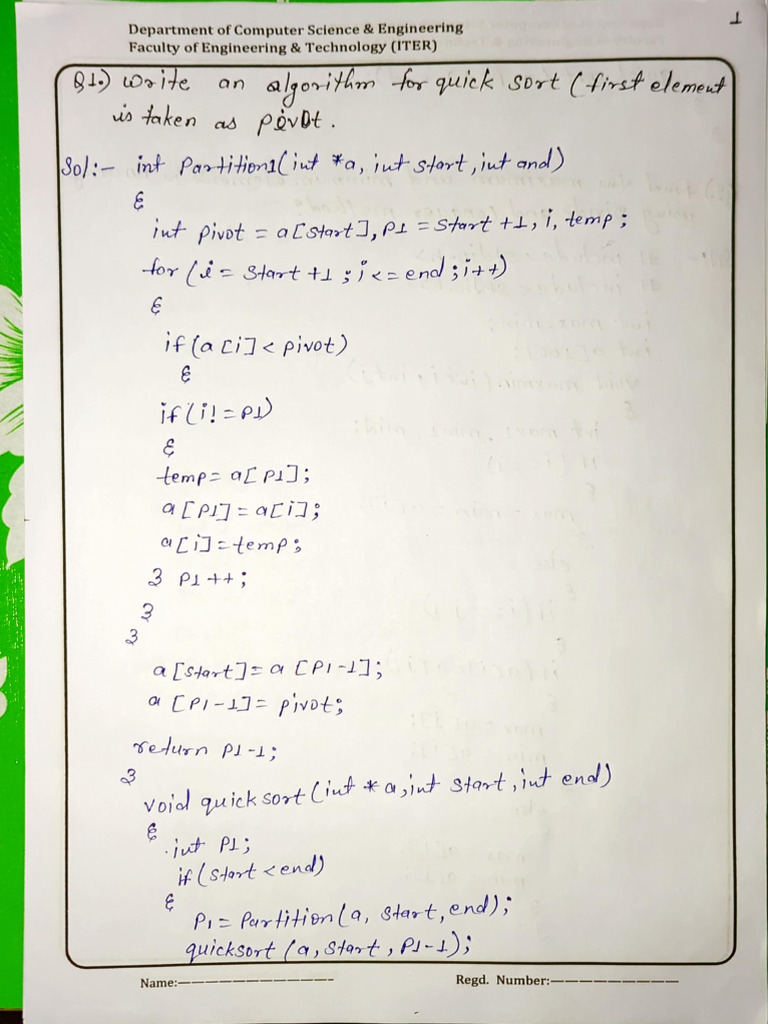 1
Department of Computer Science & Engineering
Faculty of Engineering & Technology (ITER)
Q1.) Write an algorithm for quick sort (first element
is taken as pivot.
Sol:- int Partition1(int *a, int start, int and)
{
int pivot = a[start], P1 = start +1, i, temp;
for (i = start +1 ; i <= end ; i++)
{
if (a [i] < pivot)
{
if (i! = P1)
{
temp = a[P1];
a [P1] = a[i];
a[i] = temp;
} P1 ++;
}
}
a [start] = a [P1-1];
a [P1-1] = pivot;
return P1-1;
}
void quick sort (int * a, int start, int end)
{
int P1;
if (start < end)
{
P1 = Partition (a, start, end);
quicksort (a, start, P1-1);
Name:-
Regd. Number:-